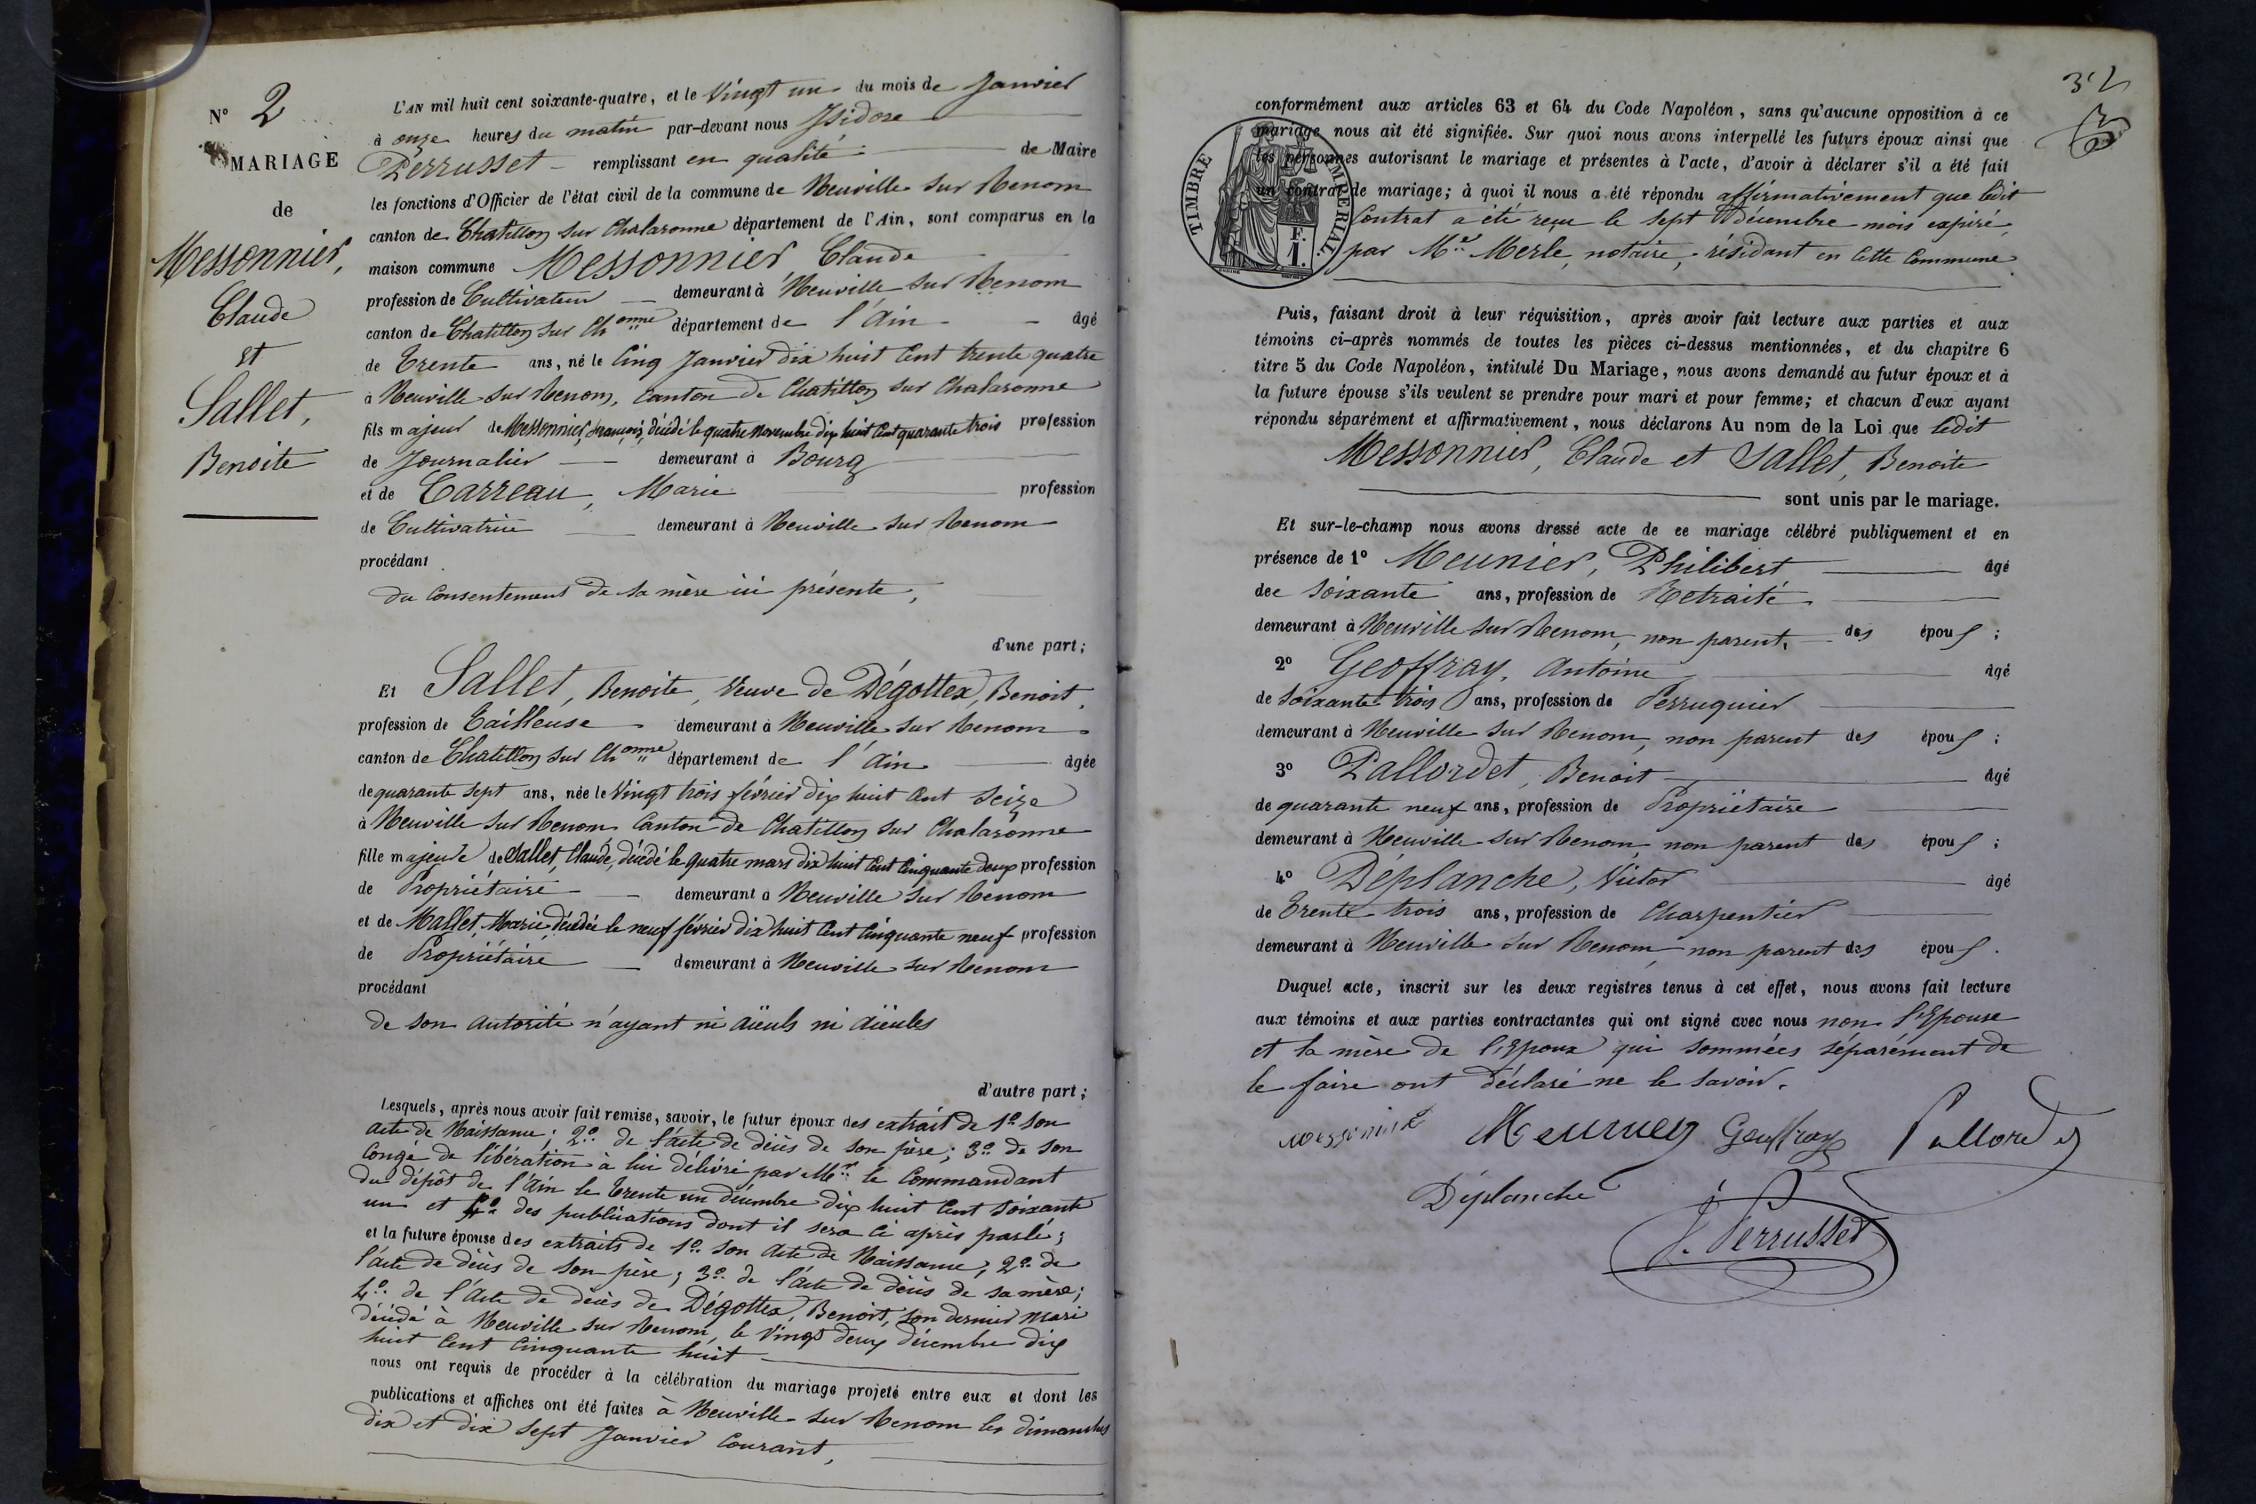 N° 2
MARIAGE
de
Messonnier,
Claude
et
Sallet,
Benoite
L'AN mil huit cent soixante-quatre, et le Vingt un du mois de Janvier
à onze heures du matin par-devant nous Isidore
Perrusset remplissant en qualité de Maire
les fonctions d'Officier de l'état civil de la commune de Neuville sur Renom
canton de Chatillon sur Chalaronne département de l'Ain, sont comparus en la
maison commune Messonnier Claude
profession de Cultivateur demeurant à Neuville sur Renom
canton de Chatillon sur Chonne département de l'Ain âgé
de Trente ans, né le Cinq Janvier dix huit Cent trente quatre
à Neuville sur Renom, Canton de Chatillon sur Chalaronne
fils majeur de Messonnier, françois, décédé le quatre novembre dix huit Cent quarante trois profession
de Journalier demeurant à Bourg
et de Carreau, Marie profession
de Cultivatrice demeurant à Neuville sur Renom
procédant
du Consentement de sa mère ici présente,
d'une part;
Et Sallet, Benoite, Veuve de Dégottex, Benoit,
profession de Tailleuse demeurant à Neuville sur Renom
canton de Chatillon sur Chonne département de l'Ain âgée
de quarante sept ans, née le Vingt trois février dix huit Cent Seize
à Neuville sur Renom Canton de Chatillon sur Chalaronne
fille majeure de Sallet, Claude, décédé le quatre mars dix huit Cent Cinquante deux profession
de Propriétaire demeurant à Neuville sur Renom
et de Mallet, Marie décédée le neuf février dix huit Cent Cinquante neuf profession
de Propriétaire demeurant à Neuville sur Renom
procédant
de son autorité n'ayant ni aïeuls ni aïeules
d'autre part;
Lesquels, après nous avoir fait remise, savoir, le futur époux des extrait de 1° son
acte de Naissance; 2° de l'acte de décès de son père; 3° de son
Congé de libération à lui délivré par Mr le Commandant
du dépôt de l'Ain le Trente un décembre dix huit Cent Soixante
un et 4° des publications dont il sera ci après parlé;
et la future épouse des extraits de 1° son Acte de Naissance; 2° de
l'acte de décès de son père; 3° de l'acte de décès de sa mère;
4° de l'Acte de décès de Dégottex, Benoit, son dernier Mari
décédé à Neuville sur Renom, le Vingt deux décembre dix
huit Cent Cinquante huit
nous ont requis de procéder à la célébration du mariage projeté entre eux et dont les
publications et affiches ont été faites à Neuville sur Renom les dimanches
dix et dix sept Janvier Courant,
32
conformément aux articles 63 et 64 du Code Napoléon, sans qu'aucune opposition à ce
mariage nous ait été signifiée. Sur quoi nous avons interpellé les futurs époux ainsi que
les personnes autorisant le mariage et présentes à l'acte, d'avoir à déclarer s'il a été fait
un contrat de mariage; à quoi il nous a été répondu affirmativement que ledit
Contrat a été reçu le sept décembre mois expiré,
par Me Merle, notaire, résidant en Cette Commune.
TIMBRE IMPERIAL.
F.
1.
Puis, faisant droit à leur réquisition, après avoir fait lecture aux parties et aux
témoins ci-après nommés de toutes les pièces ci-dessus mentionnées, et du chapitre 6
titre 5 du Code Napoléon, intitulé Du Mariage, nous avons demandé au futur époux et à
la future épouse s'ils veulent se prendre pour mari et pour femme; et chacun d'eux ayant
répondu séparément et affirmativement, nous déclarons Au nom de la Loi que ledit
Messonnier, Claude et Sallet, Benoite
sont unis par le mariage.
Et sur-le-champ nous avons dressé acte de ce mariage célébré publiquement et en
présence de 1° Meunier, Philibert âgé
dee Soixante ans, profession de Retraité
demeurant à Neuville sur Renom, non parent des épous;
2° Geoffray, Antoine âgé
de Soixante trois ans, profession de Perruquier
demeurant à Neuville sur Renom, non parent des épous;
3° Pallordet, Benoit âgé
de quarante neuf ans, profession de Propriétaire
demeurant à Neuville sur Renom, non parent des épous;
4° Déplanche, Victor âgé
de Trente trois ans, profession de Charpentier
demeurant à Neuville sur Renom, non parent des épous.
Duquel acte, inscrit sur les deux registres tenus à cet effet, nous avons fait lecture
aux témoins et aux parties contractantes qui ont signé avec nous non l'Epouse
et la mère de l'Epoux qui sommées séparément de
le faire ont déclaré ne le savoir.
Meunier Geoffray Pallordet
Déplanche
J. Perrusset